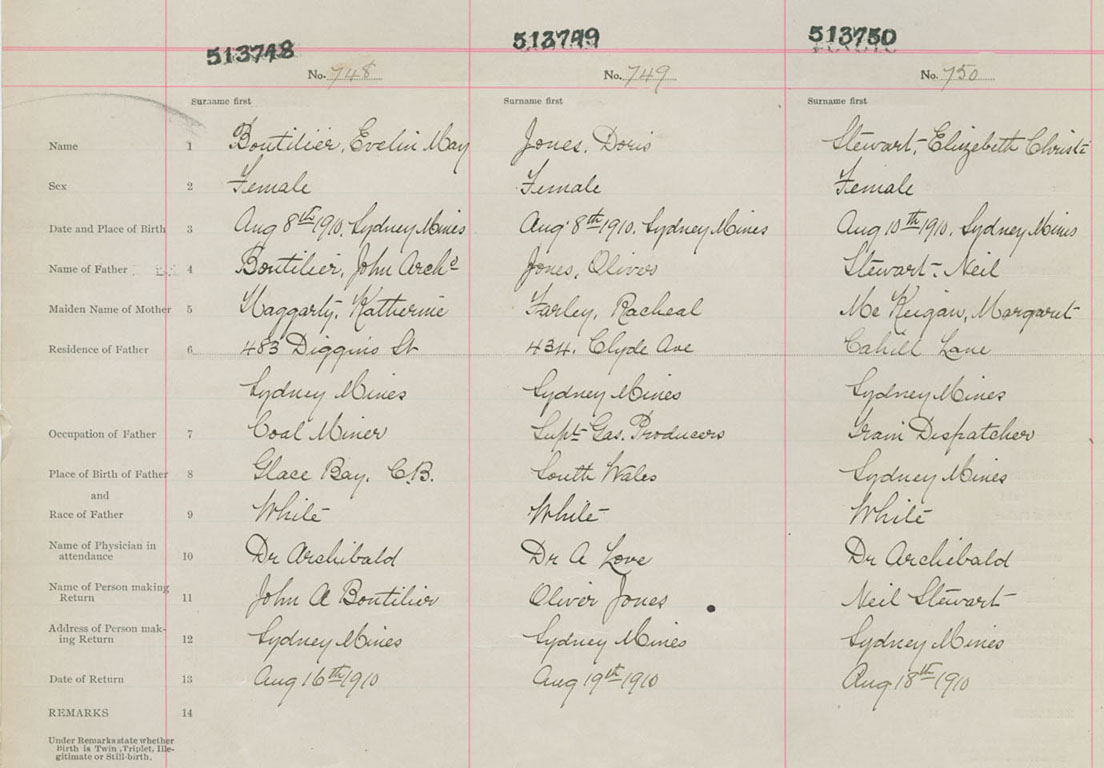 513748 513749 513750
No. 748 No. 749 No. 750
Surname first Surname first Surname first
Name 1 Boutilier, Evelin May Jones, Doris Stewart, Elizabeth Christ
Sex 2 Female Female Female
Date and Place of Birth 3 Aug 8th 1910, Sydney Mines Aug 8th 1910, Sydney Mines Aug 10th 1910, Sydney Mines
Name of Father 4 Boutilier, John Archd Jones, Oliver Stewart, Neil
Maiden Name of Mother 5 Haggarty, Katherine Farley, Racheal Mc Keigan, Margaret
Residence of Father 6 483 Diggins St 434, Clyde Ave Cahill Lane
Sydney Mines Sydney Mines Sydney Mines
Occupation of Father 7 Coal Miner Supt Gas. Producers Train Dispatcher
Place of Birth of Father 8 Glace Bay, C.B. South Wales Sydney Mines
and
Race of Father 9 White White White
Name of Physician in
attendance 10 Dr Archibald Dr A Love Dr Archibald
Name of Person making
Return 11 John A Boutilier Oliver Jones Neil Stewart
Address of Person mak-
ing Return 12 Sydney Mines Sydney Mines Sydney Mines
Date of Return 13 Aug 16th 1910 Aug 19th 1910 Aug 18th 1910
REMARKS 14
Under Remarks state whether
Birth is Twin, Triplet, Ille-
gitimate or Still-birth.